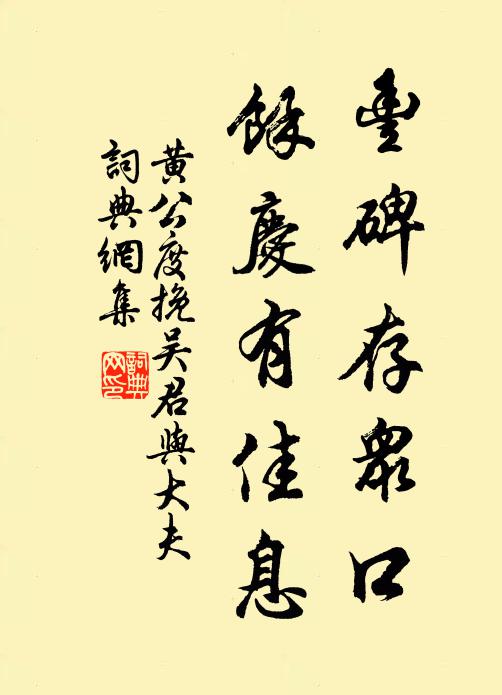 豐碑存眾口
餘慶有佳息
黃公度挽吴君與大夫
詞典網集
詞典网印